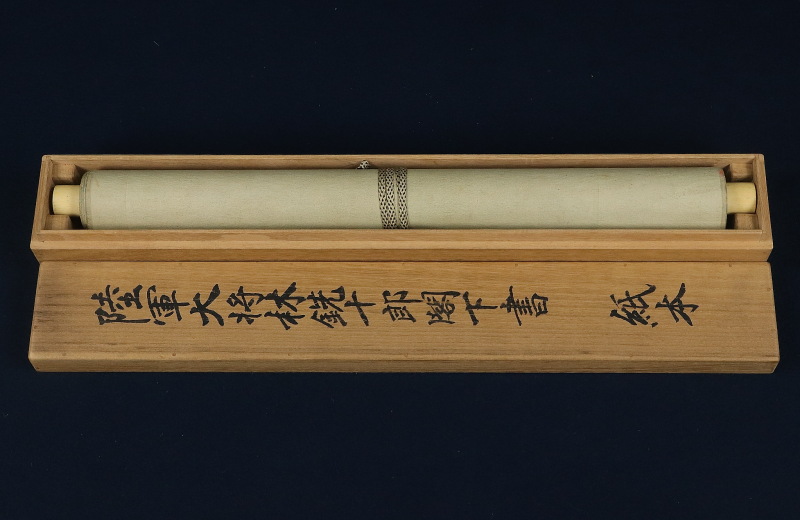 陸軍大将林銑十郎閣下書　紙本